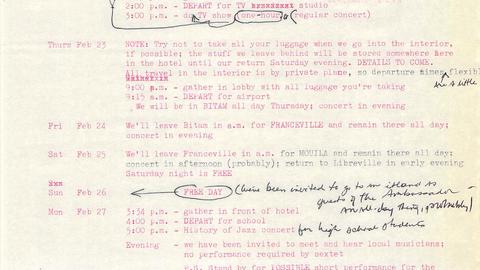 2:00 p.m. - DEPART for TV xxxxxxxx studio
3:00 p.m. - TV show (one-hour) (regular concert)
Thurs Feb 23 NOTE: Try not to take all your luggage when we go into the interior,
if possible; the stuff we leave behind will be stored somewhere here
in the hotel until our return Saturday evening. DETAILS TO COME.
All travel in the interior is by private plane, so departure times flexible
are a little
9:00 a.m. - gather in lobby with all luggage you're taking
9:15 a.m. - DEPART for airport
We will be in BITAM all day Thursday; concert in evening
Fri Feb 24 We'll leave Bitam in a.m. for FRANCEVILLE and remain there all day;
concert in evening
Sat Feb 25 We'll leave Franceville in a.m. for MOUILA and remain there all day;
concert in afternoon (probably); return to Libreville in early evening
Saturday night is FREE
xxx
Sun Feb 26 FREE DAY (have been invited to go to an island as
guests of the Ambassador -
an all-day thing, probably)
Mon Feb 27 3:34 p.m. - gather in front of hotel
4:00 p.m. - DEPART for school
5:00 p.m. - History of Jazz concert for high school students
Evening - we have been invited to meet and hear local musicians;
no performance required by sextet
P.S. Stand by for POSSIBLE short performance for the